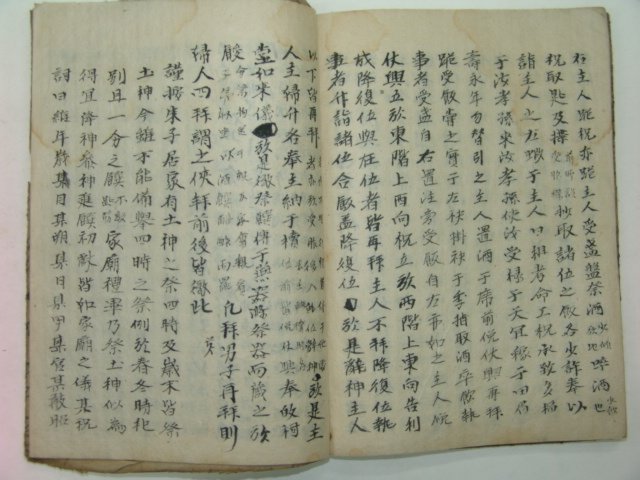 右主人跪祝亦跪主人受盞盤祭酒 啐酒也
祝取匙及楪 抄取諸位之飯各少許奉以
詣主人之左嘏于主人曰祖考命工祝承致多福
于汝孝孫來汝孝孫使汝受祿于天宜稼于田眉
壽永年勿替引之主人置酒于席前俛伏興再拜
跪受飯嘗之實于左袂掛袂于季指取酒卒飮執
事者受盞自右置注旁受飯自左亦如之主人俛
伏興立於東階上西向祝立於西階上東向告利
成降復位與在位者皆再拜主人不拜降復位執
事者升詣諸位合飯盖降復位 於是辭神主人
以下皆再拜 於是主
人主婦升各奉主納于櫝 奉歸祠
堂如來儀 於是徹祭 傳于燕器滌祭器而藏之於
餕 凡拜男子再拜則
婦人四拜謂之俠拜前後皆倣此
謹按朱子居家有土神之祭四時及歲末皆祭
土神今雖不能備擧四時之祭例於春冬時祀
別具一分之饌 家廟禮畢乃祭土神似爲
得宜降神參神進饌初獻皆如家廟之儀其祝
詞曰維年歲某月某朔某日某甲某官某敢昭